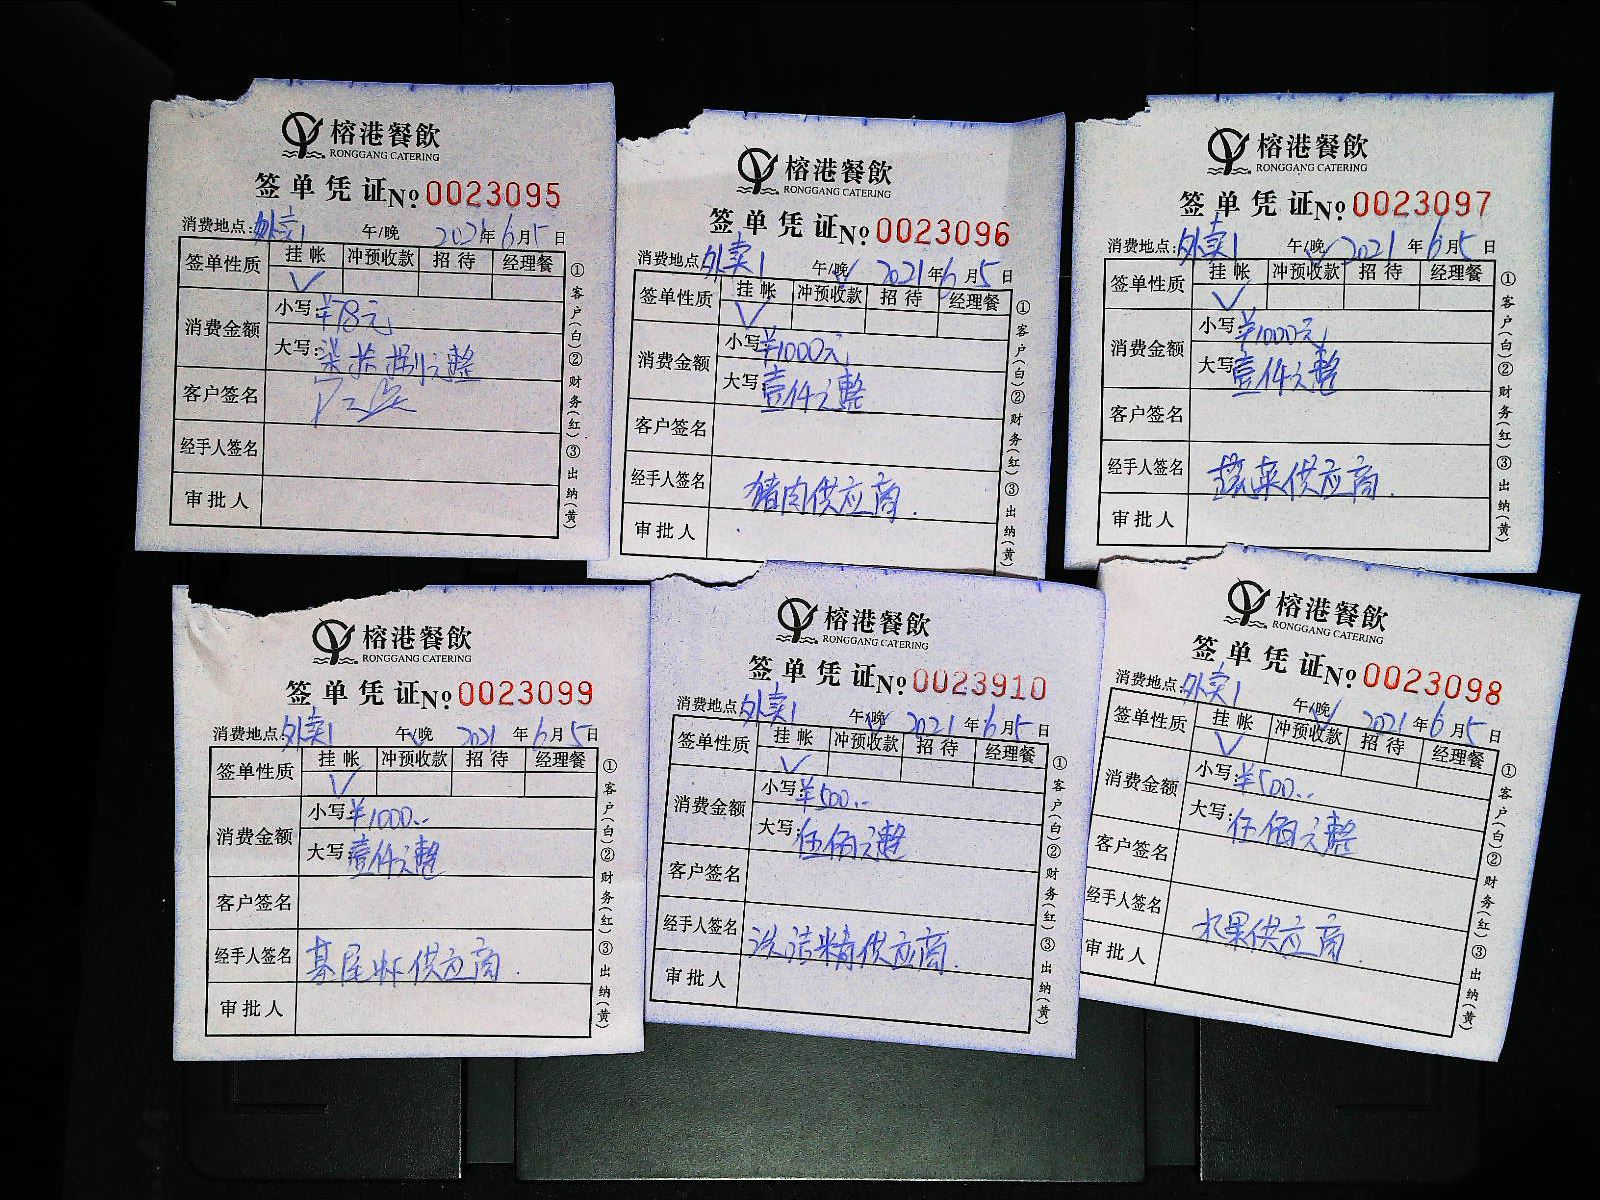 榕港餐飲
RONGGANG CATERING
签单凭证No 0023095
消费地点:外卖1 午/晚 2021年6月5日
签单性质 挂帐 冲预收款 招待 经理餐
✓
消费金额 小写:¥78元
大写:柒拾捌元整
客户签名
经手人签名
审批人
①客户(白)②财务(红)③出纳(黄)
榕港餐飲
RONGGANG CATERING
签单凭证No 0023096
消费地点:外卖1 午/晚✓ 2021年6月5日
签单性质 挂帐 冲预收款 招待 经理餐
✓
消费金额 小写:¥1000元
大写:壹仟元整
客户签名
经手人签名 猪肉供应商.
审批人
①客户(白)②财务(红)③出纳(黄)
榕港餐飲
RONGGANG CATERING
签单凭证No 0023097
消费地点:外卖1 午/晚✓ 2021年6月5日
签单性质 挂帐 冲预收款 招待 经理餐
✓
消费金额 小写:¥1000元
大写:壹仟元整
客户签名
经手人签名 蔬菜供应商.
审批人
①客户(白)②财务(红)③出纳(黄)
榕港餐飲
RONGGANG CATERING
签单凭证No 0023099
消费地点:外卖1 午/晚✓ 2021年6月5日
签单性质 挂帐 冲预收款 招待 经理餐
✓
消费金额 小写:¥1000..
大写:壹仟元整
客户签名
经手人签名 基尾虾供应商.
审批人
①客户(白)②财务(红)③出纳(黄)
榕港餐飲
RONGGANG CATERING
签单凭证No 0023910
消费地点:外卖1 午/晚✓ 2021年6月5日
签单性质 挂帐 冲预收款 招待 经理餐
✓
消费金额 小写:¥500..
大写:伍佰元整
客户签名
经手人签名 洗洁精供应商.
审批人
①客户(白)②财务(红)③出纳(黄)
榕港餐飲
RONGGANG CATERING
签单凭证No 0023098
消费地点:外卖1 午/晚✓ 2021年6月5日
签单性质 挂帐 冲预收款 招待 经理餐
✓
消费金额 小写:¥500..
大写:伍佰元整
客户签名
经手人签名 水果供应商.
审批人
①客户(白)②财务(红)③出纳(黄)